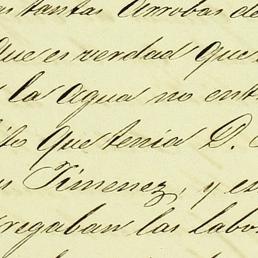 tantas arrobas de
Que es verdad que
la agua no ent
que tenia D.
Jimenez, y es
regaban las labo